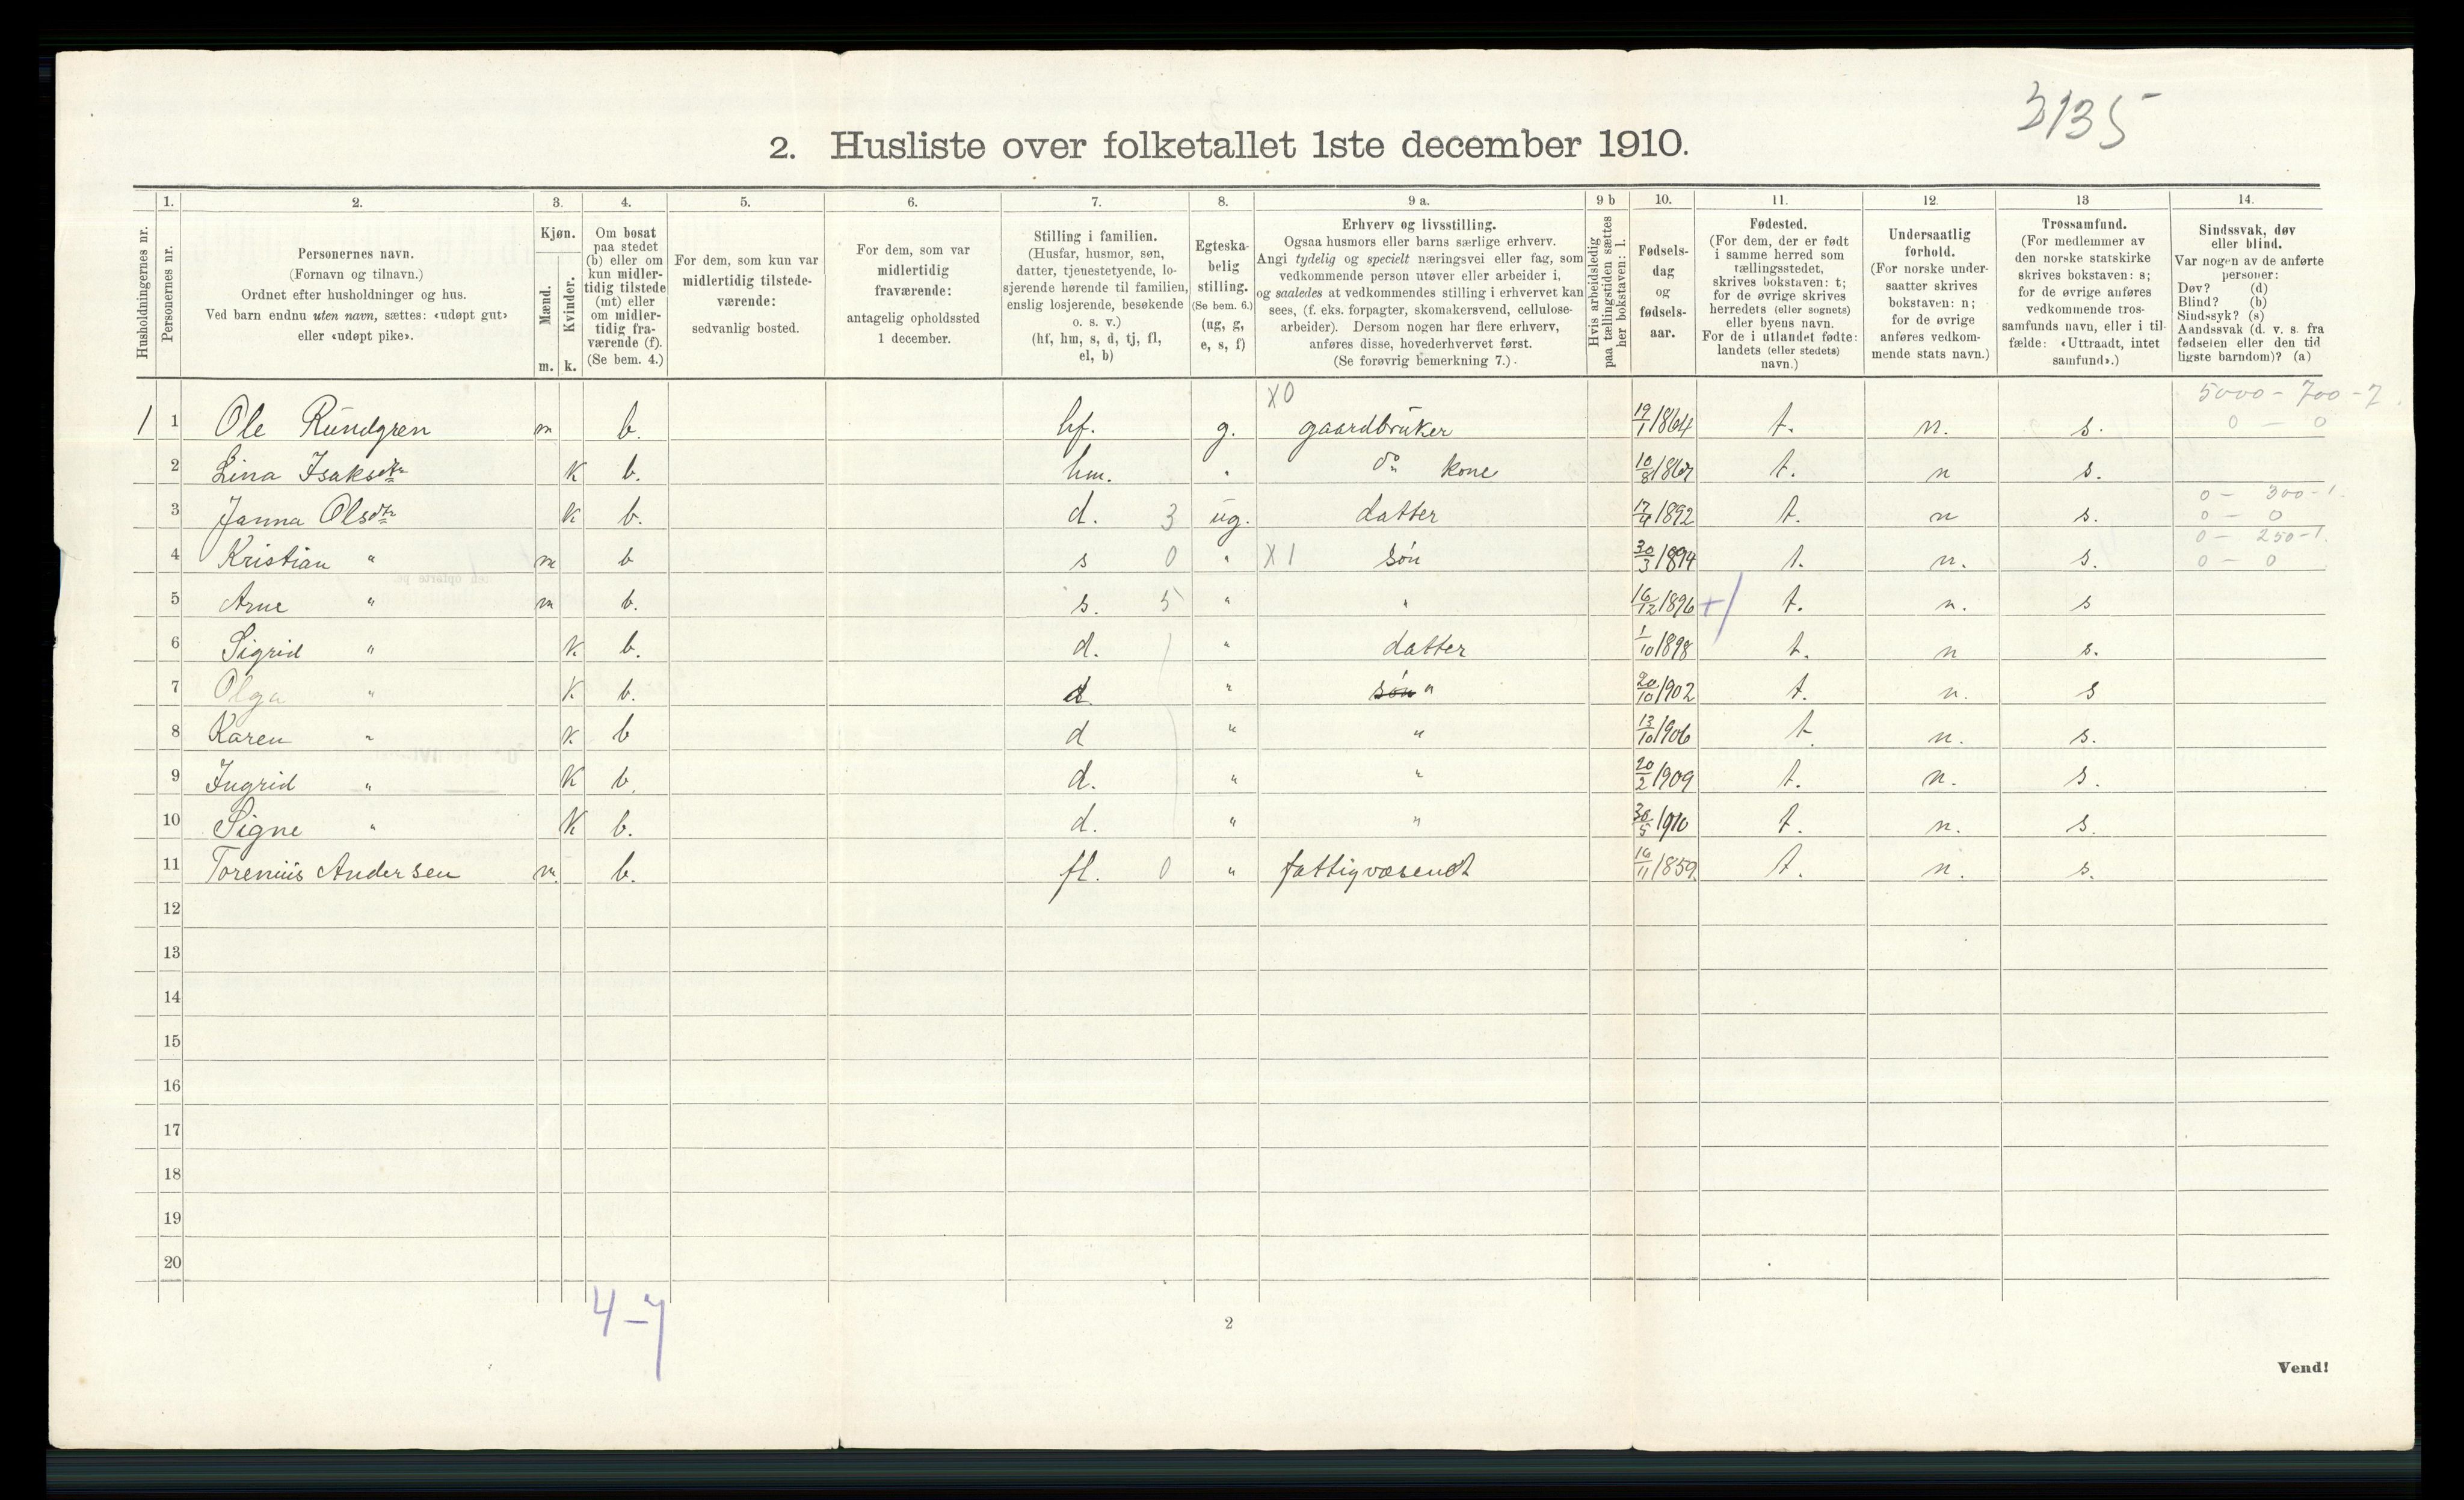 3135
2. Husliste over folketallet 1ste december 1910.
Husholdningernes nr.
1. Personernes nr.
2. Personernes navn. (Fornavn og tilnavn.) Ordnet efter husholdninger og hus. Ved barn endnu uten navn, sættes: «udøpt gut» eller «udøpt pike».
3. Kjøn. Mænd. m. Kvinder. k.
4. Om bosat paa stedet (b) eller om kun midler-tidig tilstede (mt) eller om midler-tidig fra-værende (f). (Se bem. 4.)
5. For dem, som kun var midlertidig tilstede-værende: sedvanlig bosted.
6. For dem, som var midlertidig fraværende: antagelig opholdssted 1 december.
7. Stilling i familien. (Husfar, husmor, søn, datter, tjenestetyende, lo-sjerende hørende til familien, enslig losjerende, besøkende o. s. v.) (hf, hm, s, d, tj, fl, el, b)
8. Egteska-belig stilling. (Se bem. 6.) (ug, g, e, s, f)
9 a. Erhverv og livsstilling. Ogsaa husmors eller barns særlige erhverv. Angi tydelig og specielt næringsvei eller fag, som vedkommende person utøver eller arbeider i, og saaledes at vedkommendes stilling i erhvervet kan sees, (f. eks. forpagter, skomakersvend, cellulose-arbeider). Dersom nogen har flere erhverv, anføres disse, hovederhvervet først. (Se forøvrig bemerkning 7.)
9 b Hvis arbeidsledig paa tællingstiden sættes her bokstaven: l.
10. Fødsels-dag og fødsels-aar.
11. Fødested. (For dem, der er født i samme herred som tællingsstedet, skrives bokstaven: t; for de øvrige skrives herredets (eller sognets) eller byens navn. For de i utlandet fødte: landets (eller stedets) navn.)
12. Undersaatlig forhold. (For norske under-saatter skrives bokstaven: n; for de øvrige anføres vedkom-mende stats navn.)
13 Trossamfund. (For medlemmer av den norske statskirke skrives bokstaven: s; for de øvrige anføres vedkommende tros-samfunds navn, eller i til-fælde: «Uttraadt, intet samfund».)
14. Sindssvak, døv eller blind. Var nogen av de anførte personer: Døv? (d) Blind? (b) Sindssyk? (s) Aandssvak (d. v. s. fra fødselen eller den tid-ligste barndom)? (a)
X0 5000 - 700 - 7
1 1 Ole Rundgren m b. hf. g. gaardbruker 19/1 1864 t. n. s. 0 - 0
2 Lina Isaksdtr K b. hm. " do kone t. n s.
0 - 300 - 1.
3 Janna Olsdtr K b. d. 3 ug. datter 17/4 1892 t. n s. 0 - 0
0 - 250 - 1.
4 Kristian " m b s 0 " X1 søn 30/3 1894 t. n. s. 0 - 0
5 Arne " m b. s. 5 " " 16/12 1896 + t. n. s
6 Sigrid " K b. d. " datter 1/10 1898 t. n s.
7 Olga " K b. d " søn " 20/10 1902 t. n. s
8 Karen " K b d " " 13/10 1906 t n. s.
9 Ingrid " K b. d. " " 20/2 1909 t. n. s.
10 Signe " K b. d. " " 30/5 1910 t. n. s.
11 Torenius Andersen m. b. fl. 0 " fattigvæsendt 16/11 1859 t. n. s.
12
13
14
15
16
17
18
19
20
4-7
2
Vend!